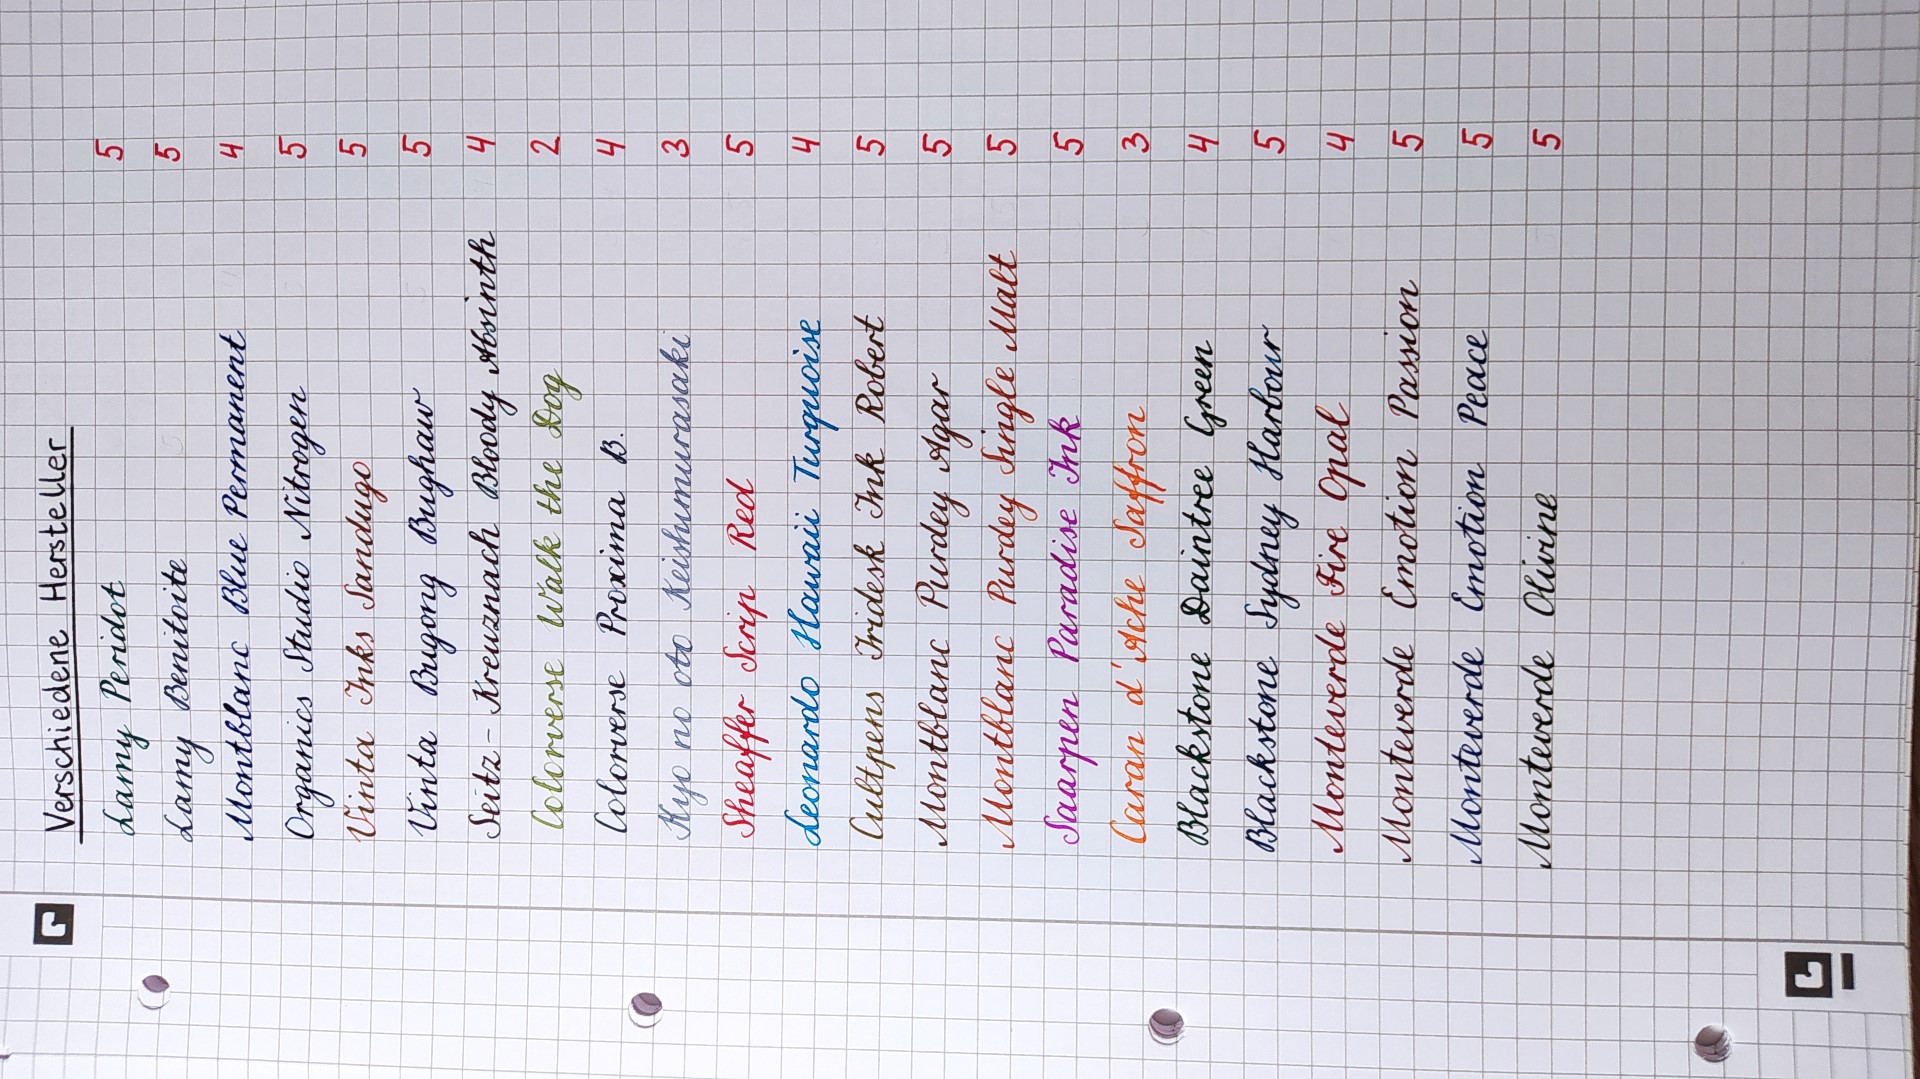 Verschiedene Hersteller
Lamy Peridot 5
Lamy Benitoite 5
Montblanc Blue Permanent 4
Organics Studio Nitrogen 5
Vinta Inks Sandugo 5
Vinta Bugong Bughaw 5
Seitz-Kreuznach Bloody Absinth 4
Colorverse Walk the Dog 2
Colorverse Proxima B. 4
Kyo no oto Keishumurasaki 3
Sheaffer Scrip Red 5
Leonardo Hawaii Turquoise 4
Cultpens Iridesk Ink Robert 5
Montblanc Purdey Agar 5
Montblanc Purdey Single Malt 5
Saarpen Paradise Ink 5
Caran d'Ache Saffron 3
Blackstone Daintree Green 4
Blackstone Sydney Harbour 5
Monteverde Fire Opal 4
Monteverde Emotion Passion 5
Monteverde Emotion Peace 5
Monteverde Olivine 5